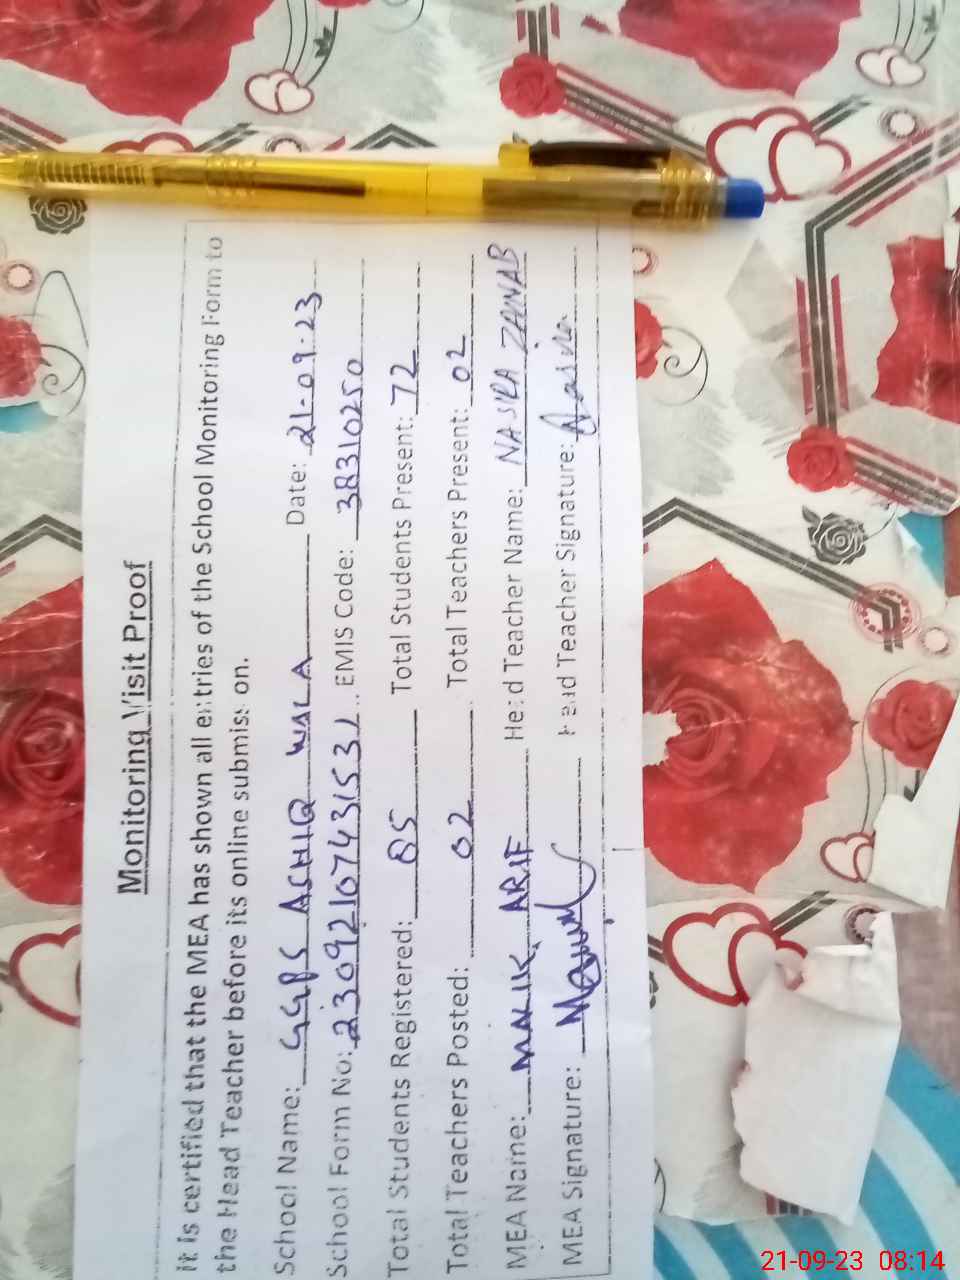 Monitoring Visit Proof
it is certified that the MEA has shown all entries of the School Monitoring Form to
the Head Teacher before its online submission.
School Name: GGPS ASHIQ WALA Date: 21-09-23
School Form No: 23092107431531 EMIS Code: 38310250
Total Students Registered: 85 Total Students Present: 72
Total Teachers Posted: 02 Total Teachers Present: 02
MEA Name: MALIK ARIF Head Teacher Name: NASIRA ZAINAB
MEA Signature: Head Teacher Signature: Nasira
21-09-23 08:14